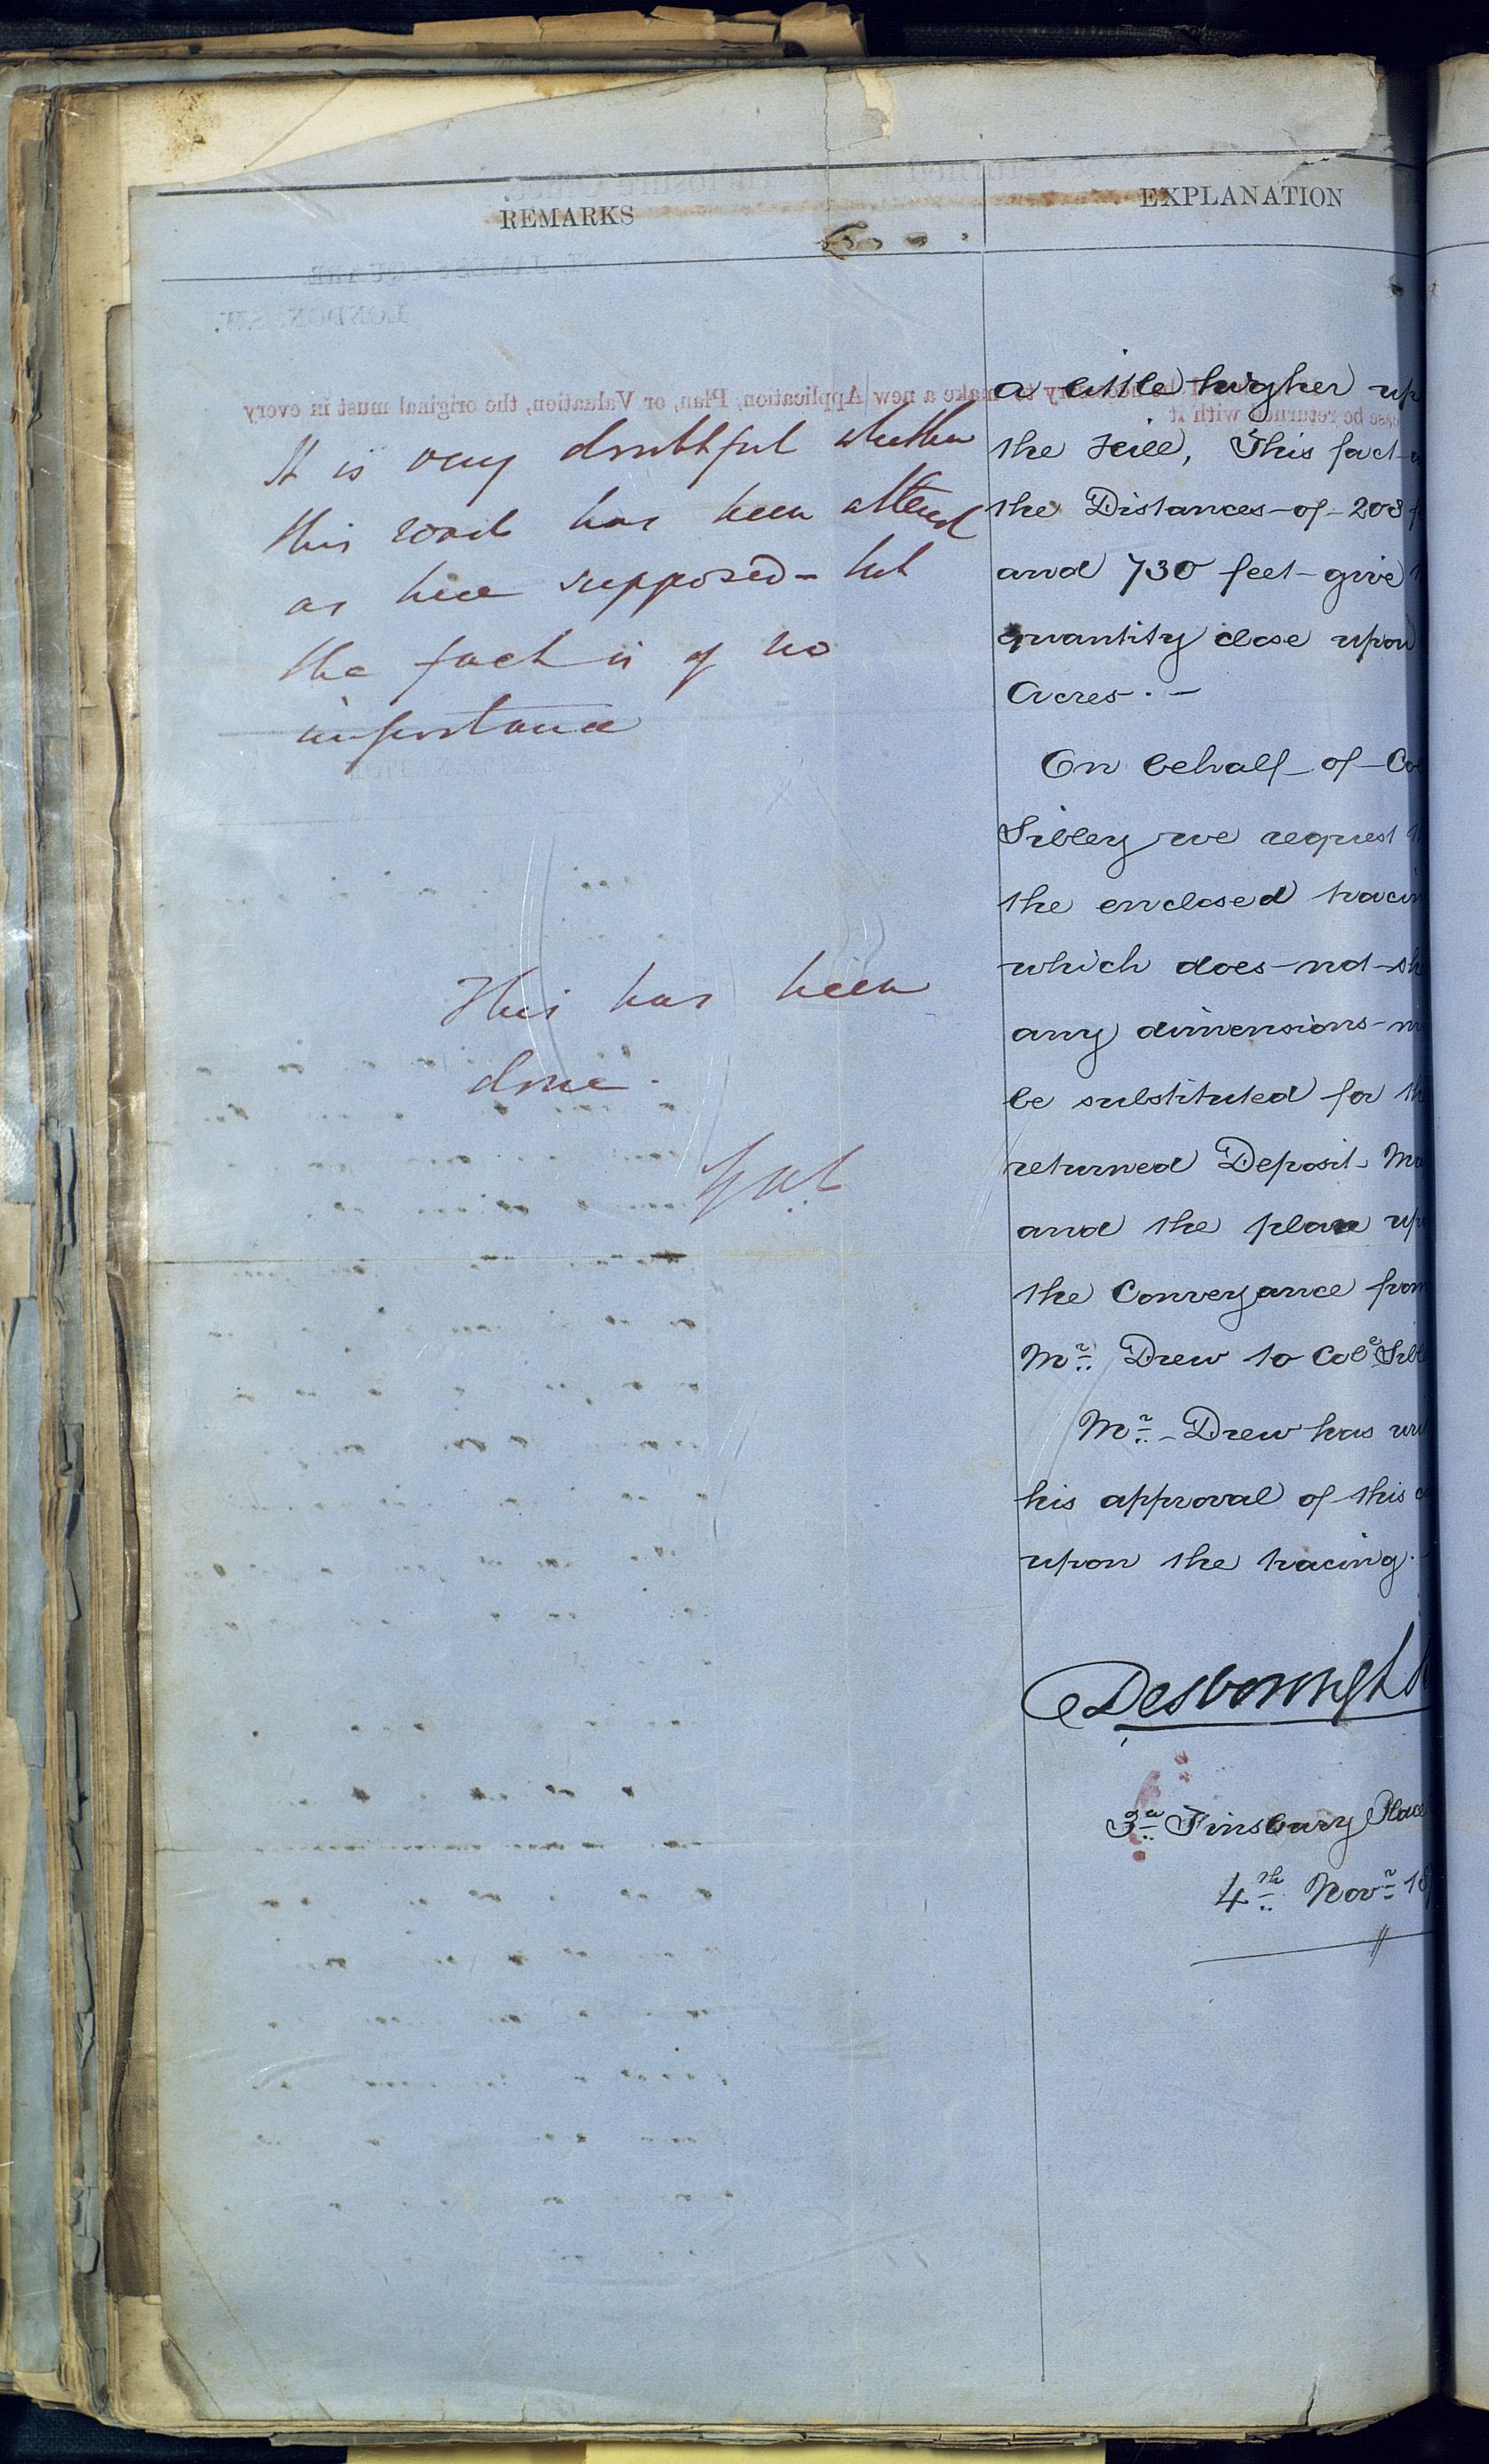 REMARKS
It is very doubtful whether
this road has been altered
as here supposed - but
the fact is of no
importance
This has been
done.
EXPLANATION
a little higher up
the Hill, This fact
the Distances of 208
and 730 feet give
quantity close upon
Acres. -
On behalf of Co
Sibley we request
the enclosed tracin
which does not sh
any dimensions m
be substituted for th
returned Deposit Ma
and the plan up
the Conveyance from
Mr. Drew to Col Sible
Mr. Drew has wri
his approval of this
upon the tracing.
Desborough
3a Finsbury Place
4th Novr 18
make a new Application, Plan, or Valuation, the original must in every
case be returned with it
ST. JAMES'S SQUARE
LONDON, S.W.